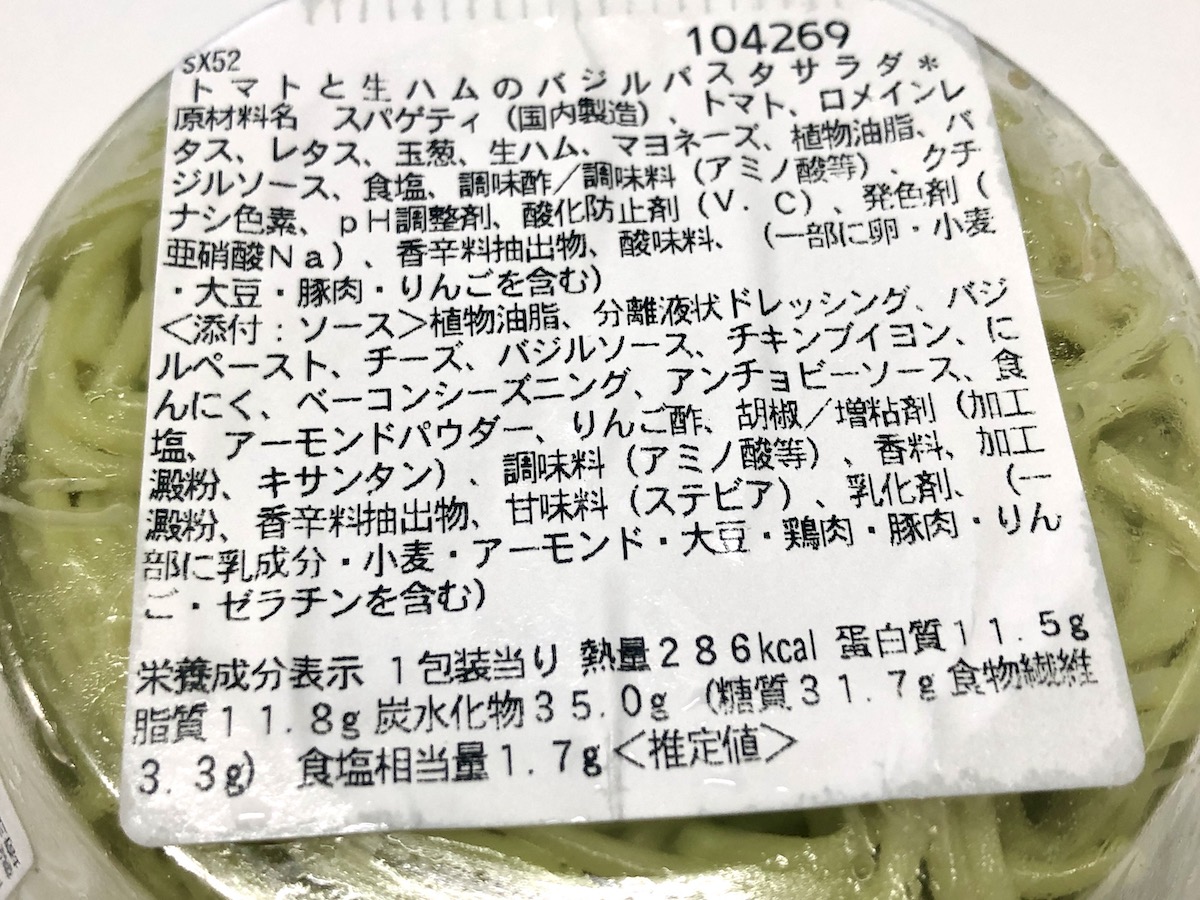 104269
SX52
トマトと生ハムのバジルパスタサラダ*
原材料名 スパゲティ（国内製造）、トマト、ロメインレ
タス、レタス、玉葱、生ハム、マヨネーズ、植物油脂、バ
ジルソース、食塩、調味酢／調味料（アミノ酸等）、クチ
ナシ色素、ｐＨ調整剤、酸化防止剤（Ｖ．Ｃ）、発色剤（
亜硝酸Ｎａ）、香辛料抽出物、酸味料、（一部に卵・小麦
・大豆・豚肉・りんごを含む）
＜添付：ソース＞植物油脂、分離液状ドレッシング、バジ
ルペースト、チーズ、バジルソース、チキンブイヨン、に
んにく、ベーコンシーズニング、アンチョビーソース、食
塩、アーモンドパウダー、りんご酢、胡椒／増粘剤（加工
澱粉、キサンタン）、調味料（アミノ酸等）、香料、加工
澱粉、香辛料抽出物、甘味料（ステビア）、乳化剤、（一
部に乳成分・小麦・アーモンド・大豆・鶏肉・豚肉・りん
ご・ゼラチンを含む）
栄養成分表示 １包装当り 熱量２８６kcal 蛋白質１１．５g
脂質１１．８g 炭水化物３５．０g （糖質３１．７g 食物繊維
３．３g） 食塩相当量１．７g＜推定値＞